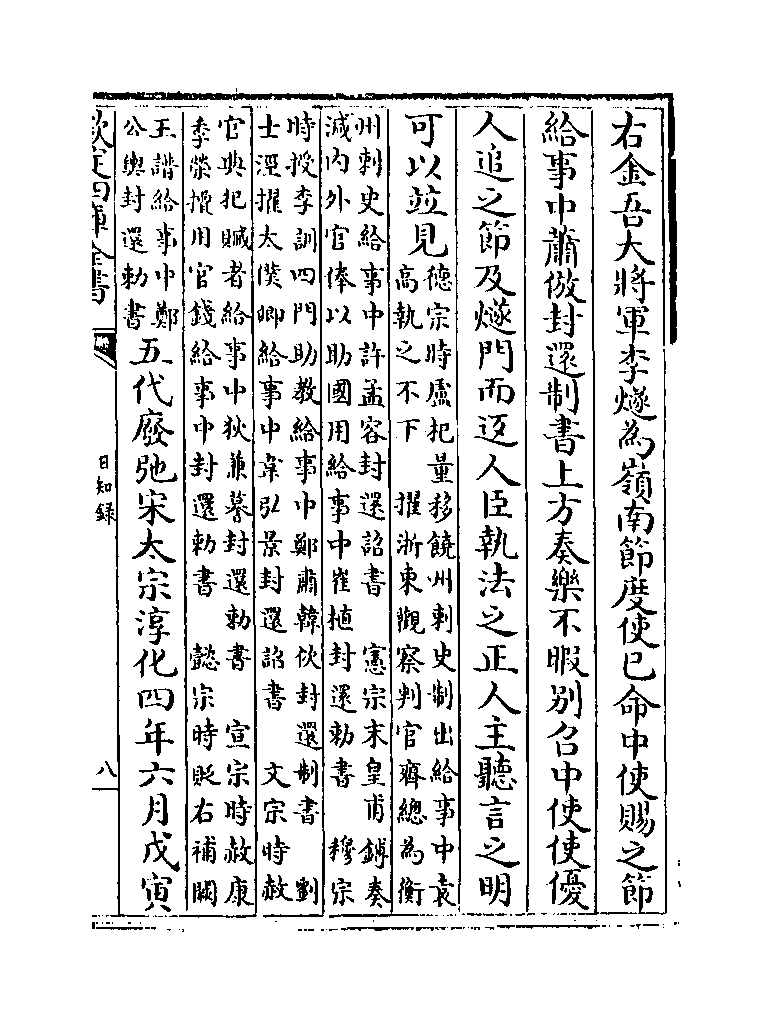 右金吾大將軍李燧為嶺南節度使已命中使賜之節
給事中蕭倣封還制書上方奏樂不暇别召中使使優
人追之節及燧門而返人臣執法之正人主聽言之明
可以竝見
德宗時盧杞量移饒州刺史制出給事中袁
高執之不下　擢浙東觀察判官齊總為衡
州刺史給事中許孟容封還詔書　憲宗末皇甫鎛奏
減内外官俸以助國用給事中崔植封還勅書　穆宗
時授李訓四門助教給事中鄭肅韓佽封還制書　劉
士涇擢太僕卿給事中韋弘景封還詔書　文宗時赦
官典犯贓者給事中狄兼謩封還勅書　宣宗時赦康
季榮擅用官錢給事中封還勅書　懿宗時貶右補闕
王譜給事中鄭
公輿封還勅書
五代廢弛宋太宗淳化四年六月戊寅
欽定四庫全書
日知録
八